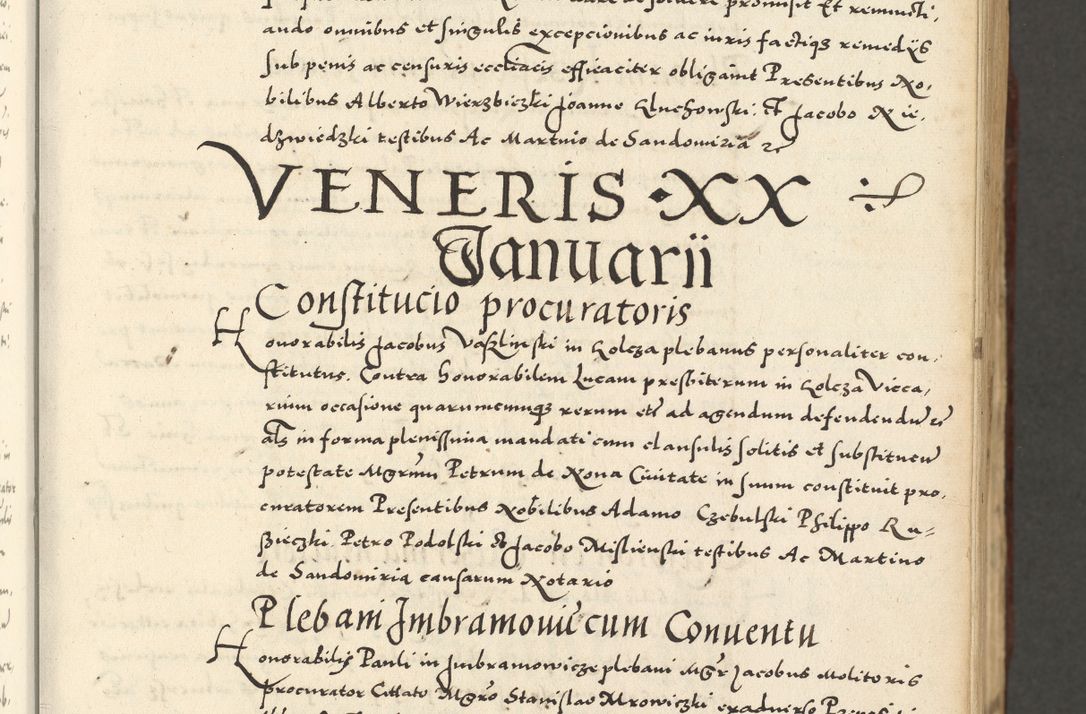 ando omnibus et singulis excepcionibus ac iuris factiqȝ remedijs
sub penis ac censuris ecclīacis efficaciter obligavit Presentibus No,
bilibus Alberto Wierzbiczki Joanne Kluchowski et Jacobo Nie,
dzwiedzki testibus Ac Martino de Sandomiria
VENERIS · XX
Januarii
Constitucio procuratoris
Honorabilis Jacobus Vaßlinski in Kolcza plebanus personaliter con,
stitutus. Contra honorabilem Lucam presbiterum in Kolcza Vicca,
rium occasione quarumcumqȝ rerum etc̄ ad agendum defendendū
al̄s in forma plenissima mandati cum clausulis solitis et substituen̄
potestate Mgr̄um Petrum de Nova Civitate in suum constituit pro,
curatorem Presentibus Nobilibus Adamo Czebulski Philippo Ru-
ßieczki Petro Podolski et Jacobo Mislienski testibus Ac Martino
de Sandomiria causarum Notario
Plebani Imbramovic̄ cum Conventu
Honorabilis Pauli in Imbramowicze plebani Mgr̄ Jacobus Molitoris
procurator Citato Mgr̄o Stanislao Mrowiczki exadverso